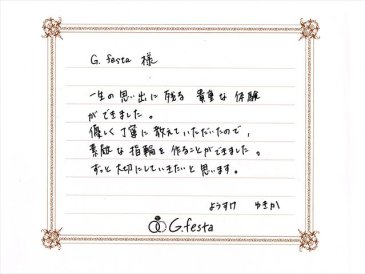 G. festa 様
一生の思い出に残る 貴重な体験
ができました。
優しく丁寧に教えていただいたので、
素敵な指輪を作ることができました。
ずっと大切にしていきたいと思います。
ようすけ ゆきか
G.festa